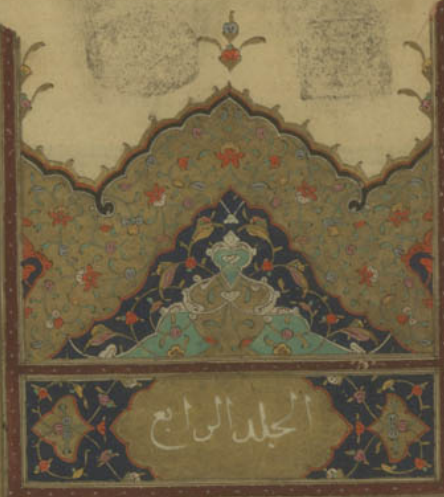 المجلد الرابع